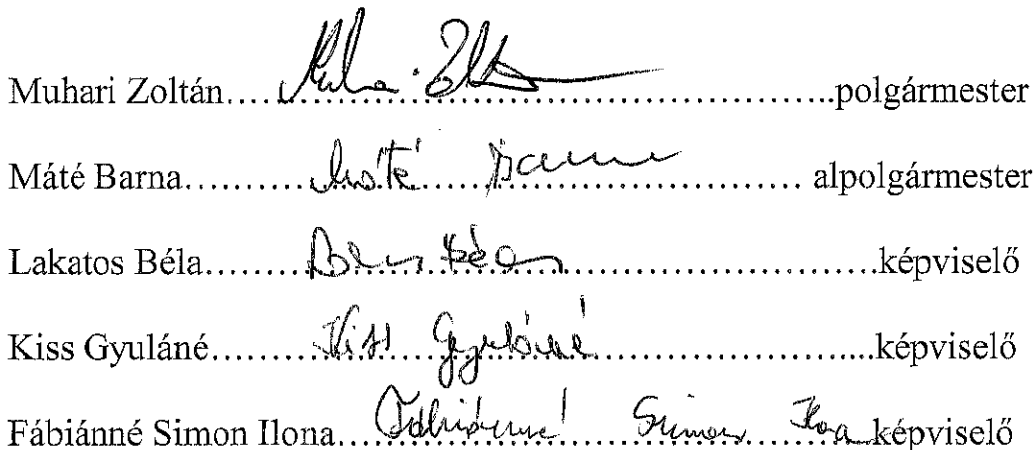 Muhari Zoltán.... Muha. Zolt ....polgármester
Máté Barna.... Máté Barna .... alpolgármester
Lakatos Béla.... Béla ....képviselő
Kiss Gyuláné.... Kiss Gyuláné ....képviselő
Fábiánné Simon Ilona.... Fábiánné Simon Ilona képviselő